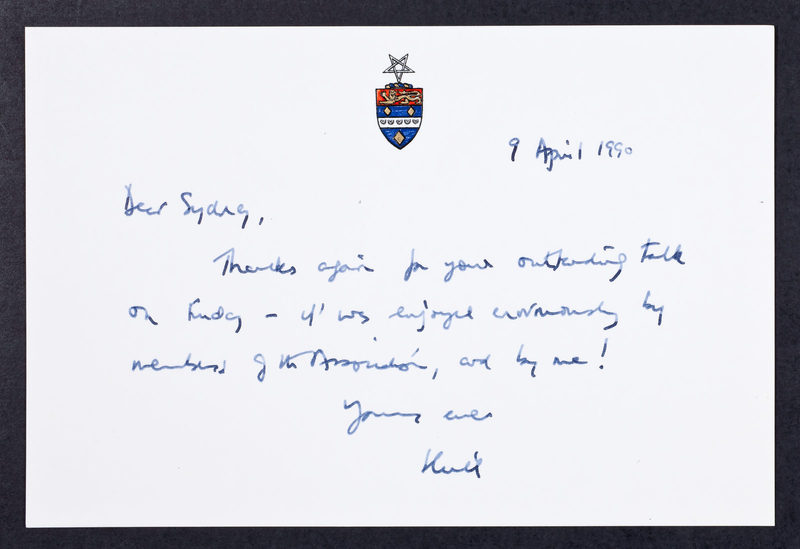 9 April 1990
Dear Sydney,
Thanks again for your outstanding talk
on Friday – it was enjoyed enormously by
members of the Association, and by me!
Yours ever